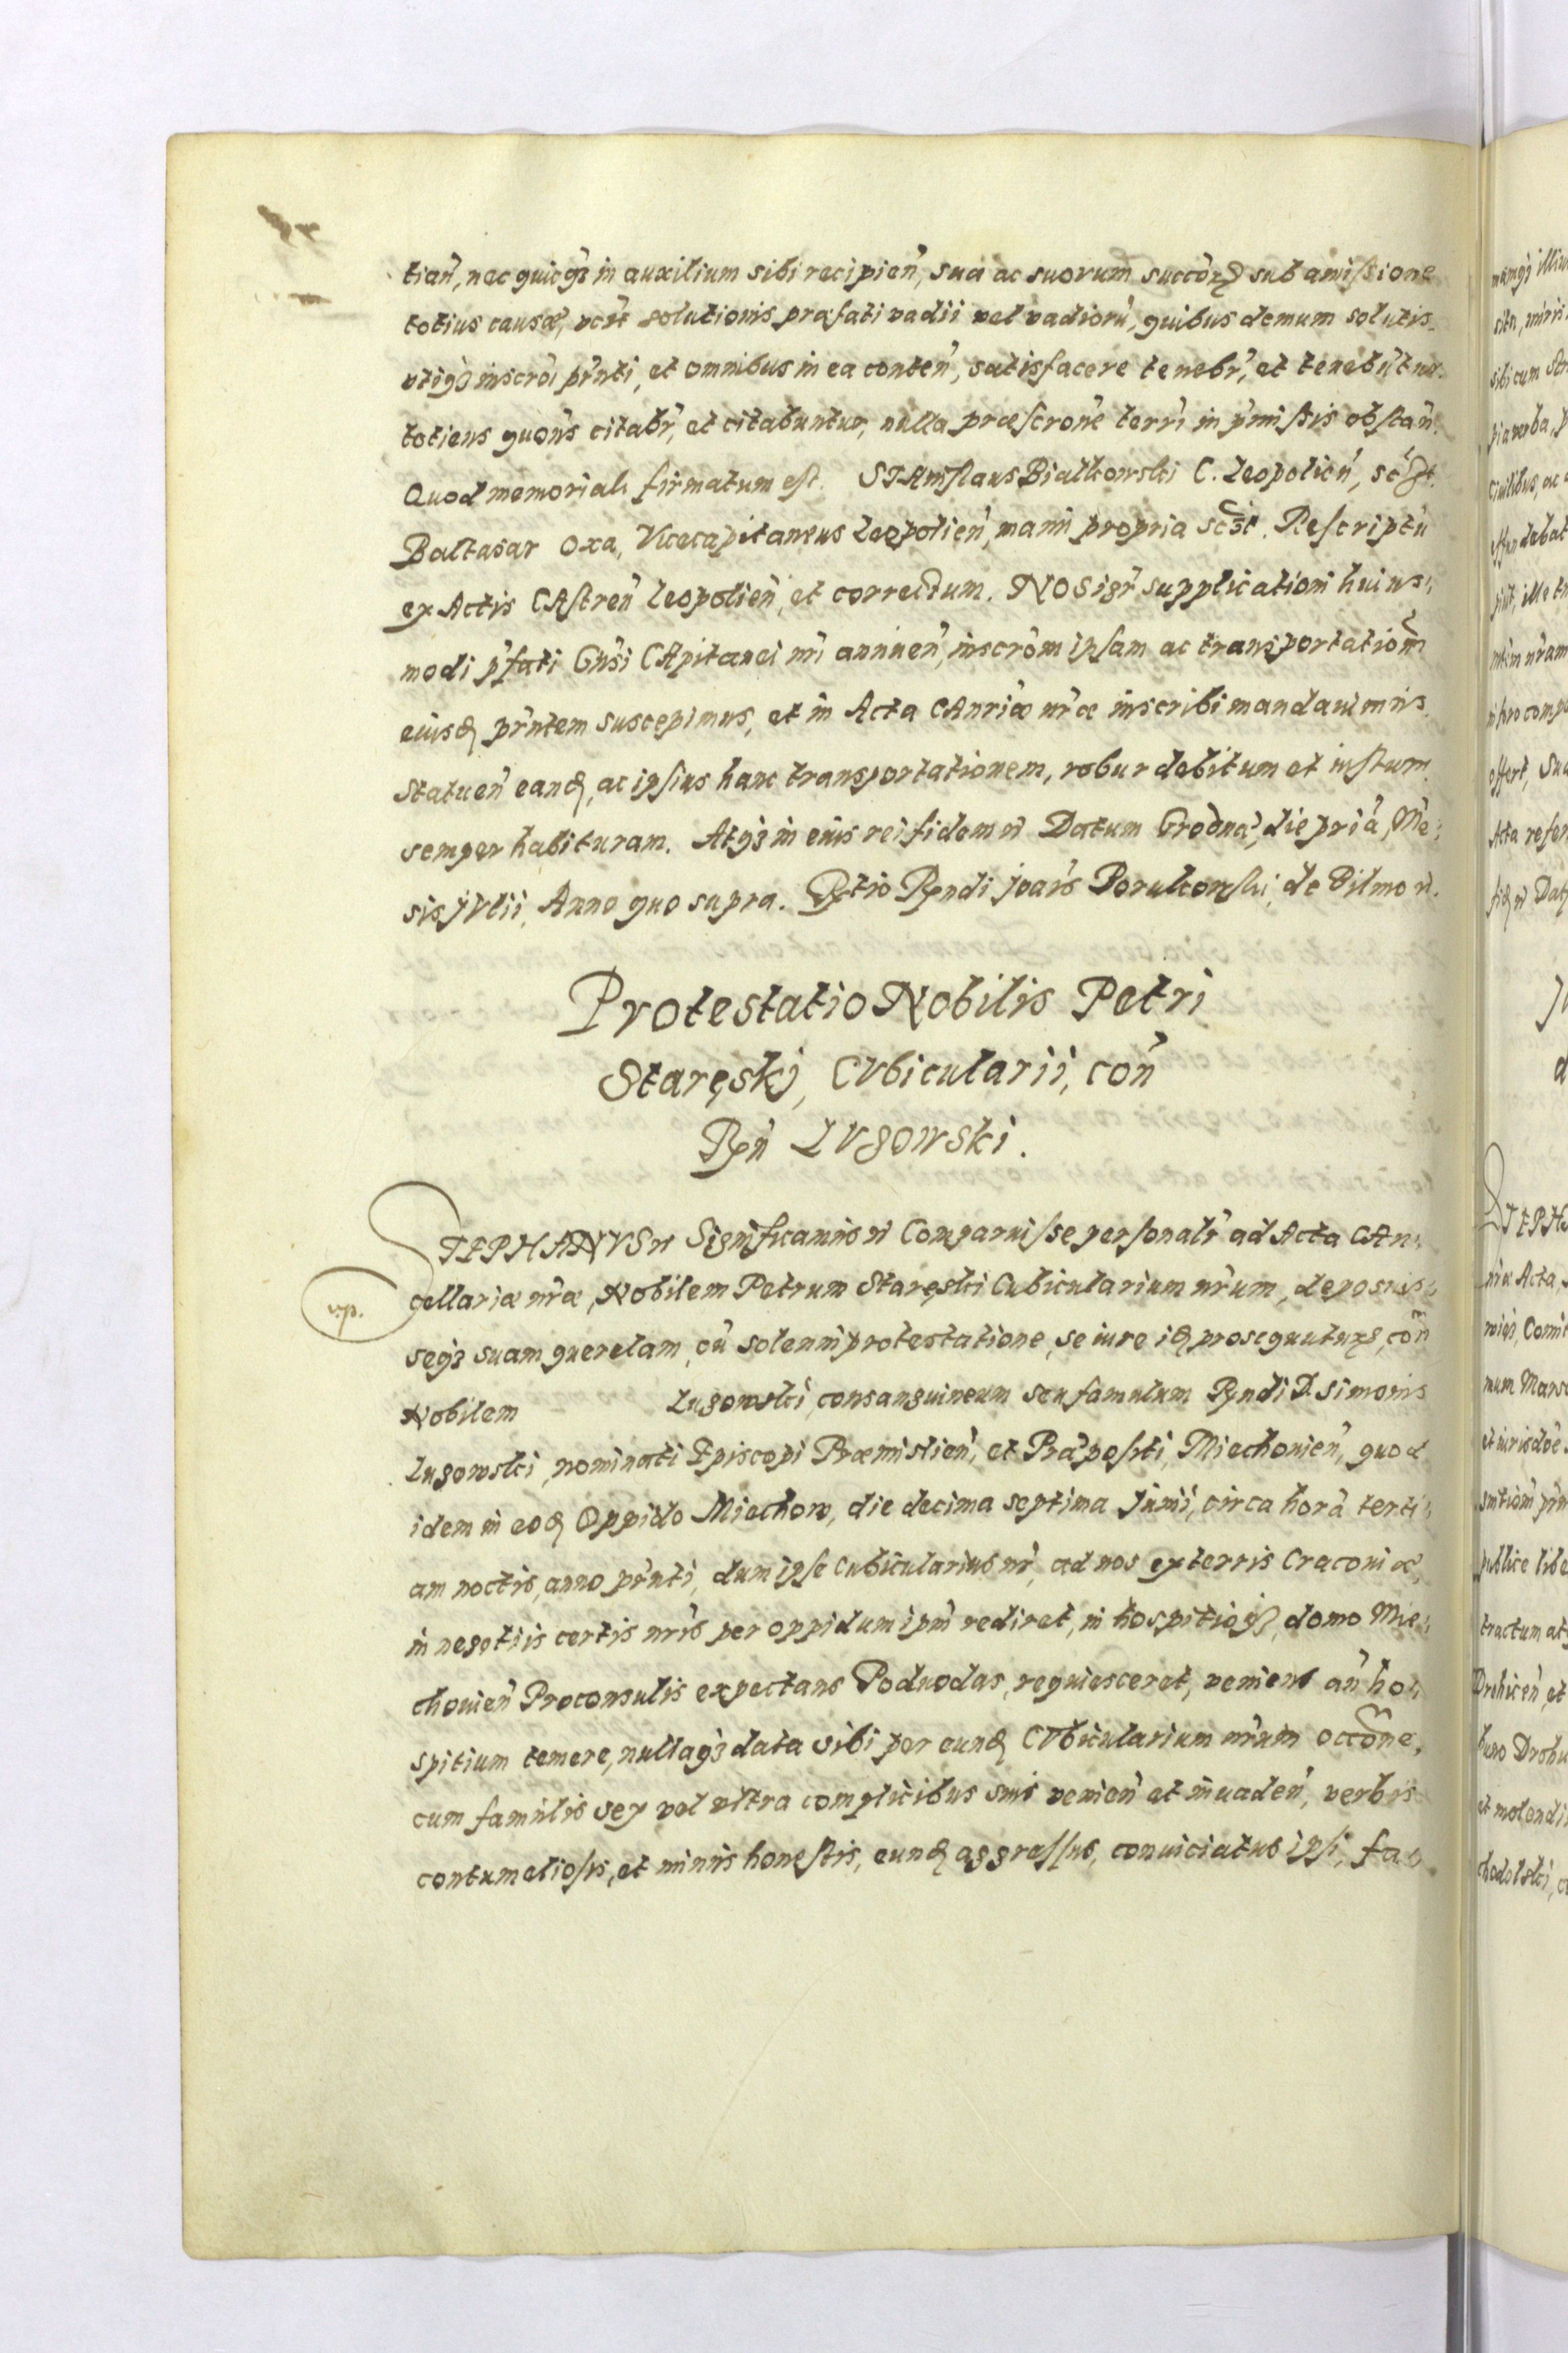 tiań, nec quicq3 in auxilium sibi recipień, sua ac suorum succor sub amissione
totius causæ, solutionis præfati vadii vel vadiorū, quibus demum solutis
inscrōi pn̄ti, et omnibus in ea conteń, satisfacere tenebr̄, et tenebūtur
totiens quoties citabr̄, et citabuntur, nulla præscrōne terrī in p̄missis obstań.
Quod memoriali firmatum est. STAnislaus Bialkowski C. Leopolień, scpt.
Baltasar Oxa, Vicecapitaneus Leopolień, manu propria scst. Rescriptū
ex Actis CAstreń Leopolień, et correctum. NOS igr̄ supplicationi huius,
modi p̄fati Gn̄si CApitanei nr̄i annueń, inscrōm ipsam ac transportationē
eiusd pn̄tem suscepimus, et in Acta CAnriæ nr̄æ inscribi mandauimus.
Statueń eand, ac ipsius hanc transportationem, robur debitum et iustum
semper habituram. Atq3 in eius rei fidem Datum Grodnæ, die pria, Me,
sis JVlii, Anno quo supra. Rtio Rndi Joañs Borukowski, de Bilino
Protestatio Nobilis Petri
Staręskj, CVbicularii, coń
Rń LVgowski.
STEPHANVS Significamus Comparuisse personalr̄ ad Acta CAn,
cellariæ nr̄æ, Nobilem Petrum Staręski Cubicularium nr̄um, deposuis,
v.p.
seq3 suam querelam, cū solenni protestatione, se iure id prosequutur, coń
Nobilem Lugowski, consanguineum seu famulum Rndi D. Simonis
Lugowski, nominati Episcopi Præmislień, et Præpositi, Miechouień, quod
idem in eod Oppido Miechow, die decima septima Junii, circa horā terti,
am noctis, anno pn̄ti, dum ipse Cubicularius nr̄, ad nos ex terris Cracouiæ,
in negotiis certis nr̄is per oppidum ipm̄ rediret, in hospitio, domo Mie,
chouień Proconsulis expectans Podwodas, requiesceret, veniens añ ho,
spitium temere, nullaq3 data sibi per eund CVbicularium nr̄um occōne,
cum famulis sex vel vltra complicibus suis venień et inuadeń, verbis
contumeliosis, et minus honestis, eund aggressus, conuiciatus ipsi, fa